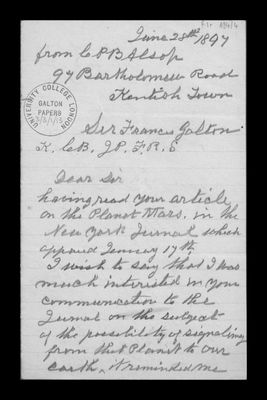 June 28th 1897
from C P B Alsop
97 Bartholomew Road
Kentish Town
UNIVERSITY COLLEGE LONDON
GALTON PAPERS
Sir Francis Galton
K. CB, JP, F.R.S
Dear Sir
having read your article
on the Planet Mars, in the
New York Jurnal which
appeared January 17th
I wish to say that I was
much interested in your
communication to the
Jurnal on the subject
of the possibility of signaling
from that Planet to our
earth, it reminded me